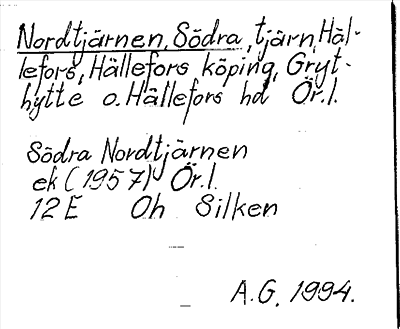 Nordtjärnen, Södra, tjärn, Häl-
lefors, Hällefors köping, Gryt-
hytte o. Hällefors hd Ör. l.
Södra Nordtjärnen
ek (1957) Ör. l.
12 E Oh Silken
A.G. 1994.